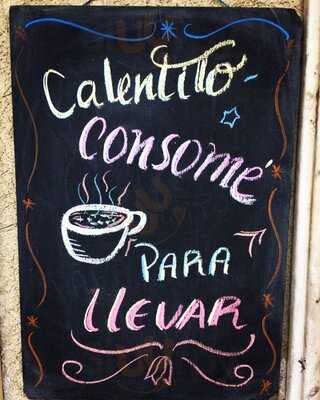 Calentito
Consomé
PARA
LLEVAR